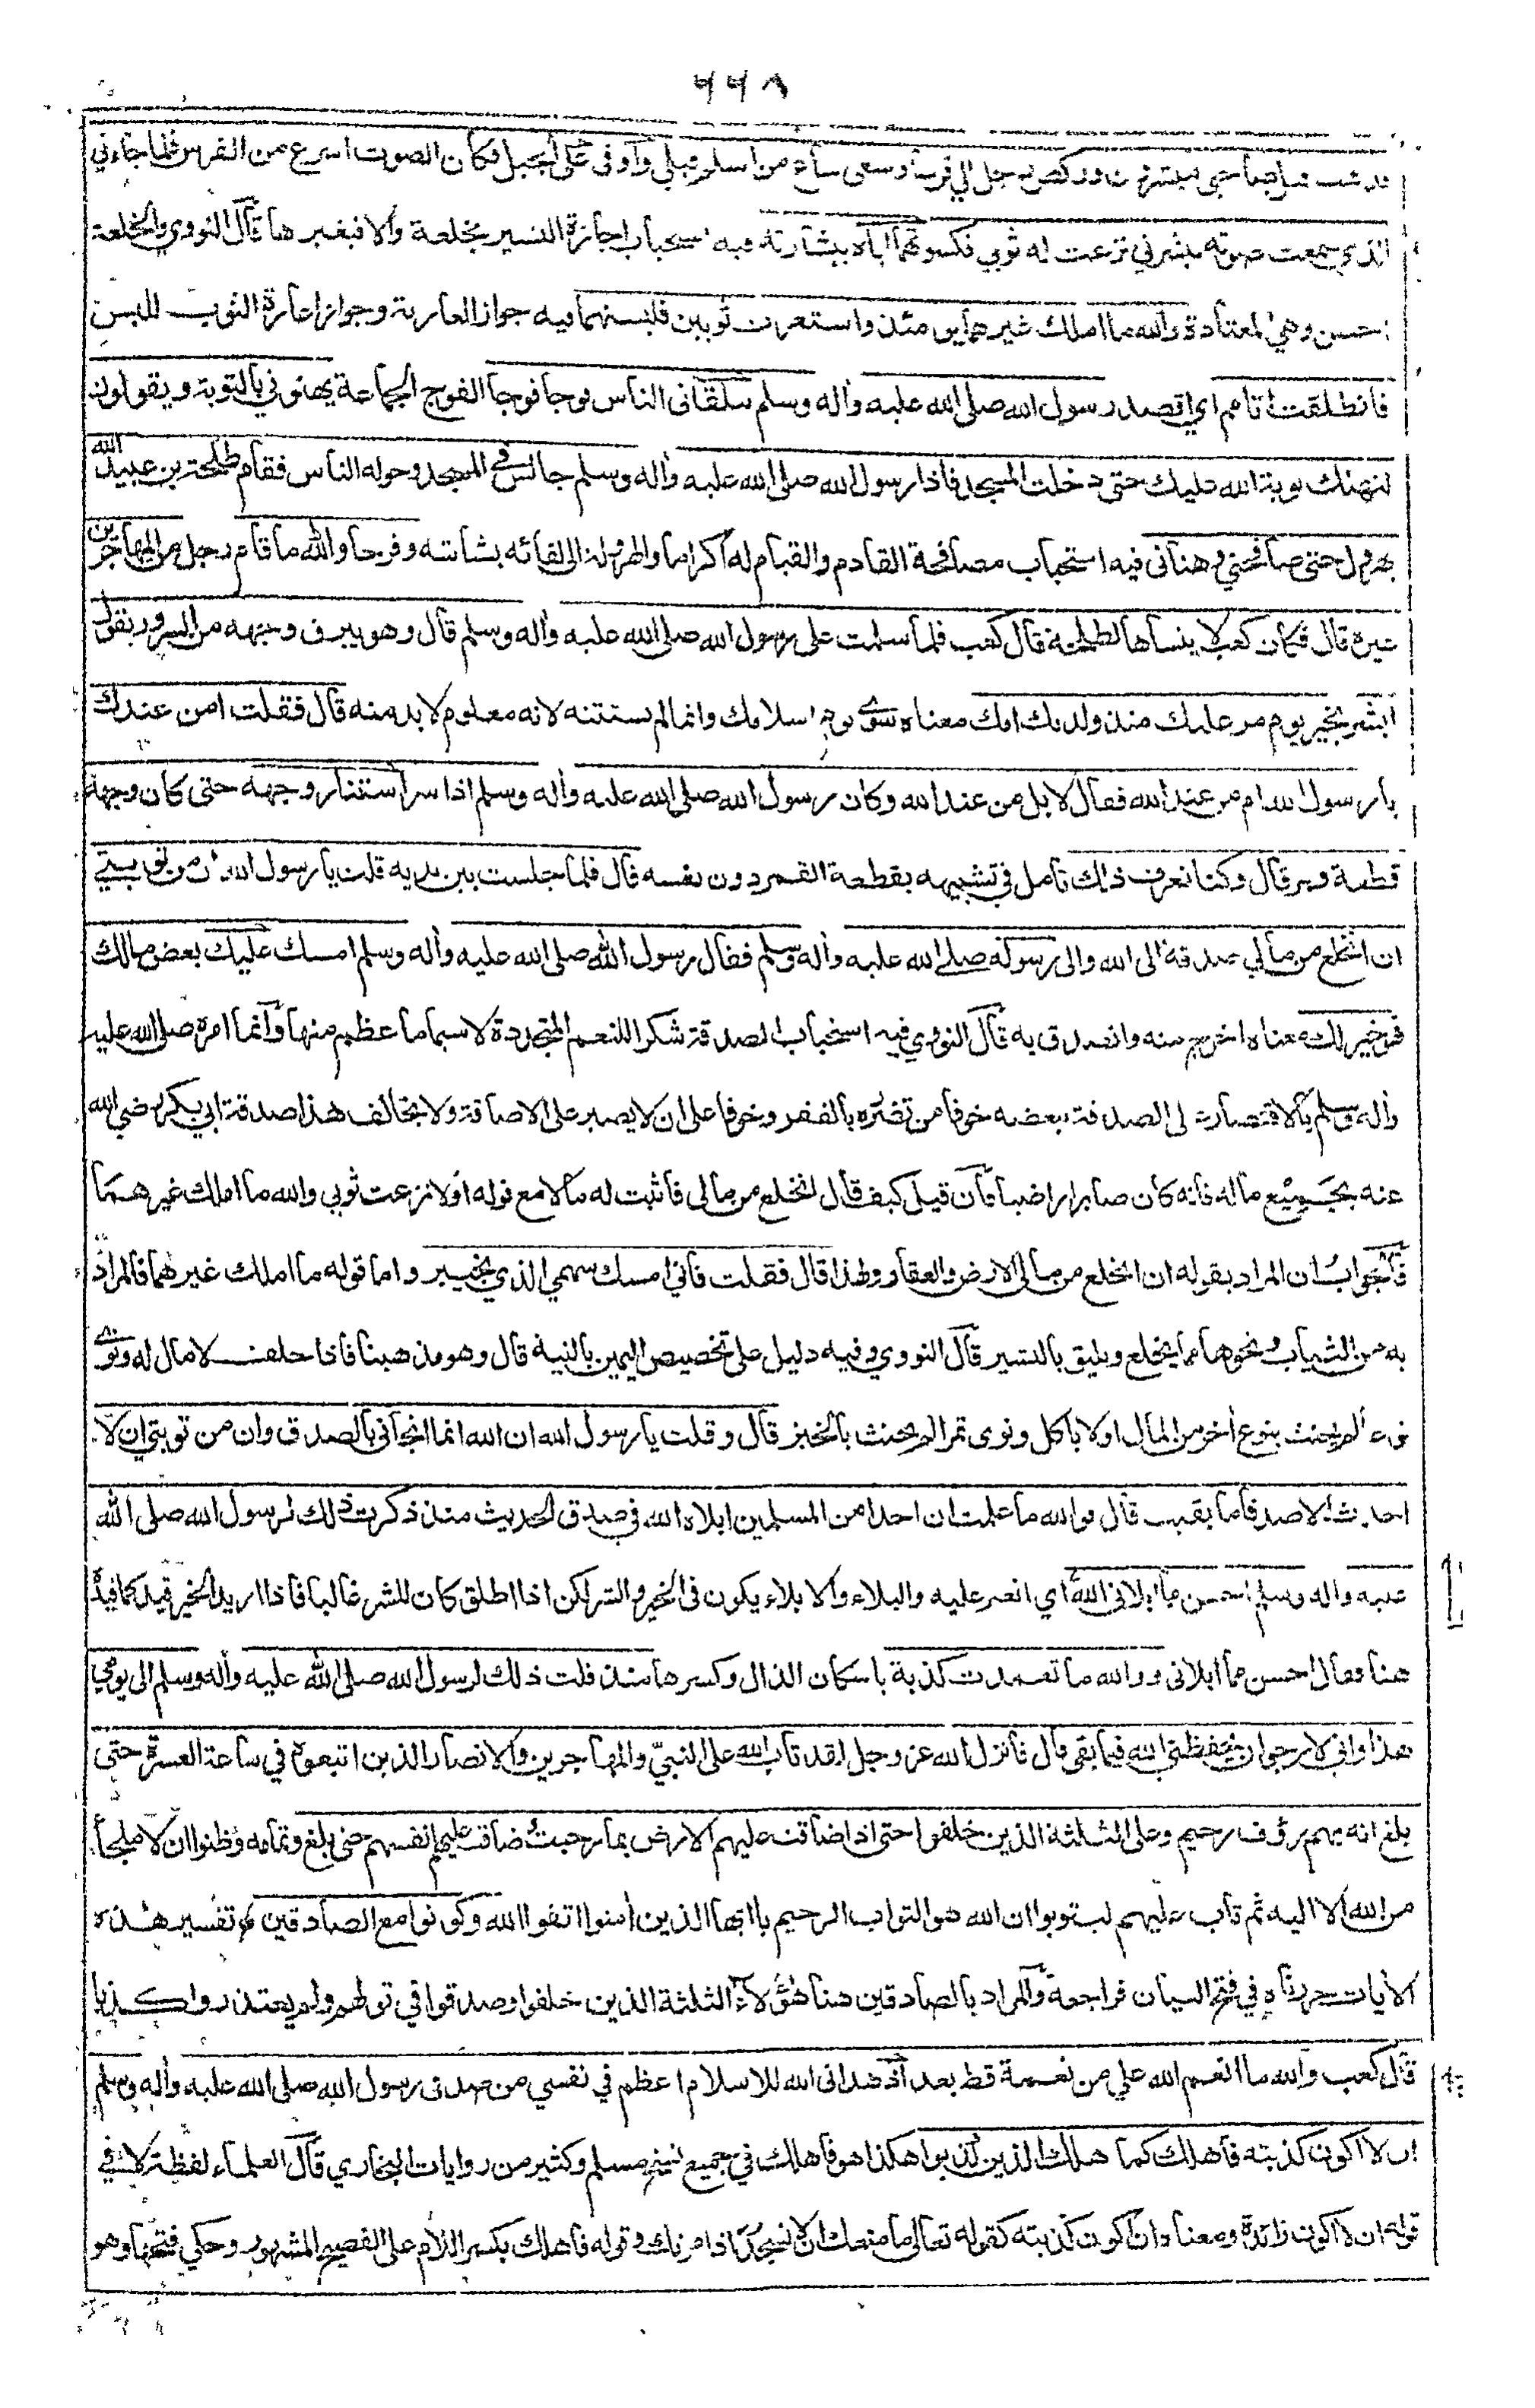 ٦٦٨
فذهب قبل صاحبي مبشرون وركض رجل الي فرسا وسعى ساع من اسلم قبلي وأوفى على الجبل فكان الصوت اسرع من الفرس فلما جاءني
الذي سمعت صوته يبشرني نزعت له ثوبي فكسوتهما اياه ببشارته فيه استحباب اجازة البشير بخلعة والا فبغيرها قال النووي والخلعة
احسن وهي المعتادة والله ما املك غيرهما يومئذ واستعرت ثوبين فلبستهما فيه جواز العارية وجواز اعارة الثوب للبس
فانطلقت اتأمم اي اقصد رسول الله صلى الله عليه وأله وسلم يتلقانى الناس فوجا فوجا الفوج الجماعة يهنئوني بالتوبة ويقولون
لتهنك توبة الله عليك حتى دخلت المسجد فاذا رسول الله صلى الله عليه وأله وسلم جالس في المسجد وحوله الناس فقام طلحة بن عبيد الله
يهرول حتى صافحني وهنأنى فيه استحباب مصافحة القادم والقيام له اكراما والهرولة الى لقائه بشاشة وفرحا والله ما قام رجل من المهاجرين
غيره قال فكان كعب لا ينساها لطلحة قال كعب فلما سلمت على رسول الله صلى الله عليه وأله وسلم قال وهو يبرق وجهه من السرور يقول
ابشر بخير يوم مر عليك منذ ولدتك امك معناه سوى يوم اسلامك وانما لم يستثنه لانه معلوم لا بد منه قال فقلت امن عندك
يا رسول الله ام من عند الله فقال لا بل من عند الله وكان رسول الله صلى الله عليه وأله وسلم اذا سر استنار وجهه حتى كان وجهه
قطعة قمر قال وكنا نعرف ذلك تأمل في تشبيهه بقطعة القمر دون نفسه قال فلما جلست بين يديه قلت يا رسول الله ان من توبتي
ان انخلع من مالي صدقة الى الله والى رسوله صلى الله عليه وأله وسلم فقال رسول الله صلى الله عليه وأله وسلم امسك عليك بعض مالك
فهو خير لك معناه اخرج منه واتصدق به قال النووي فيه استحباب الصدقة شكرا للنعم المتجددة لا سيما ما عظم منها وانما امره صلى الله عليه
وأله وسلم بالاقتصار على الصدقة ببعضه خوفا من تضرره بالفقر وخوفا على ان لا يصبر على الاضاقة ولا يخالف هذا صدقة ابي بكر رضي الله
عنه بجميع ماله فانه كان صابرا راضيا فان قيل كيف قال انخلع من مالى فاثبت له مالا مع قوله اولا نزعت ثوبي والله ما املك غيرهما
فالجواب ان المراد بقوله ان انخلع من مالي الارض والعقار ولهذا قال فقلت فاني امسك سهمي الذي بخيبر واما قوله ما املك غيرهما فالمراد
به من الثياب ونحوها مما يخلع ويليق بالبشير قال النووي وفيه دليل على تخصيص اليمين بالنية قال وهو مذهبنا فاذا حلف لا مال له ونوى
نوعا لم يحنث بنوع أخر من المال او لا يأكل ونوى تمرا لم يحنث بالخبز قال وقلت يا رسول الله ان الله انما انجاني بالصدق وان من توبتي ان لا
احدث الا صدقا ما بقيت قال فوالله ما علمت ان احدا من المسلمين ابلاه الله في صدق الحديث منذ ذكرت ذلك لرسول الله صلى الله
عليه واله وسلم احسن مما ابلاني الله اي انعم عليه والبلاء والابلاء يكون في الخير والشر لكن اذا اطلق كان للشر غالبا فاذا اريد الخير قيد كما قيده
هنا فقال احسن مما ابلانى ووالله ما تعمدت كذبة باسكان الذال وكسرها منذ قلت ذلك لرسول الله صلى الله عليه وأله وسلم الى يومي
هذا واني لارجو ان يحفظني الله فيما بقى قال فانزل الله عز وجل لقد تاب الله على النبي والمهاجرين والانصار الذين اتبعوه في ساعة العسرة حتى
بلغ انه بهم رؤف رحيم وعلى الثلثة الذين خلفوا حتى اذا ضاقت عليهم الارض بما رحبت وضاقت عليهم انفسهم حتى بلغ وتمامه وظنوا ان لا ملجأ
من الله الا اليه ثم تاب عليهم ليتوبوا ان الله هو التواب الرحيم يا ايها الذين أمنوا اتقوا الله وكونوا مع الصادقين تفسير هذه
الأيات حررناه في فتح البيان فراجعه والمراد بالصادقين هنا هؤلاء الثلثة الذين خلفوا وصدقوا في قولهم ولم يعتذروا كذبا
قال كعب والله ما انعم الله علي من نعمة قط بعد اذ هدانى الله للاسلام اعظم في نفسي من صدقى رسول الله صلى الله عليه وأله وسلم
ان لا اكون كذبته فاهلك كما هلك الذين كذبوا هكذا هو فاهلك في جميع نسخ مسلم وكثير من روايات البخاري قال العلماء لفظة لا في
قوله ان لا اكون زائدة ومعناه ان اكون كذبته كقوله تعالى ما منعك ان لا تسجد اذ امرتك وقوله فاهلك بكسر اللام على الفصيح المشهور وحكي فتحها وهو